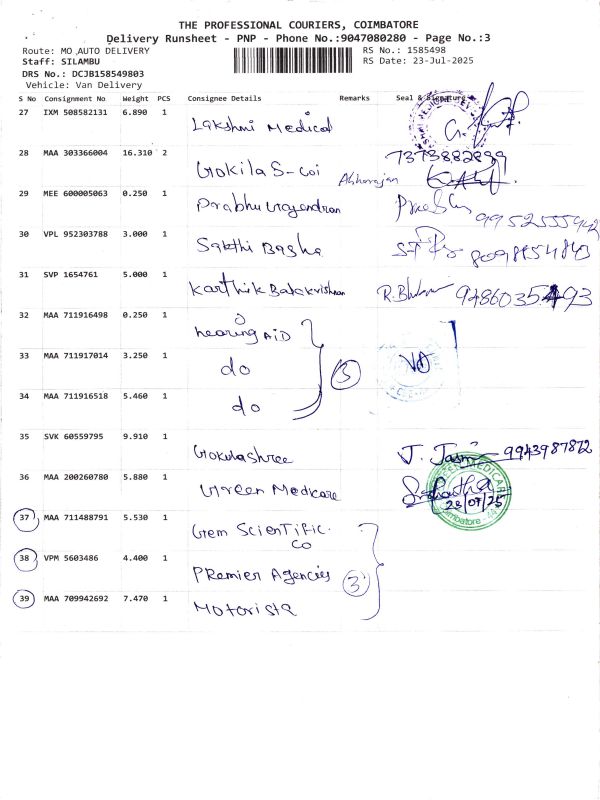 THE PROFESSIONAL COURIERS, COIMBATORE
Delivery Runsheet - PNP - Phone No.:9047080280 - Page No.:3
Route: MO AUTO DELIVERY
RS No.: 1585498
Staff: SILAMBU
RS Date: 23-Jul-2025
DRS No.: DCJB158549803
Vehicle: Van Delivery
S No Consignment No Weight PCS Consignee Details Remarks Seal & Signature
27 IXM 508582131 6.890 1 Lakshmi Medical
28 MAA 303366004 16.310 2 Gokila S-Coi 7373882899
29 MEE 600005063 0.250 1 Prabhu Gajendran 9952555942
30 VPL 952303788 3.000 1 Sakthi Basha
31 SVP 1654761 5.000 1 Karthik Balakrishnan 9486035493
32 MAA 711916498 0.250 1 hearing AiD
33 MAA 711917014 3.250 1 do 3
34 MAA 711916518 5.460 1 do
35 SVK 60559795 9.910 1 Gokulashree J. Jasmi 9943987872
36 MAA 200260780 5.880 1 Green Medicare 23/07/25
37 MAA 711488791 5.530 1 Gem Scientific. Co
38 VPM 5603486 4.400 1 PRemier Agencies 3
39 MAA 709942692 7.470 1 Motorista